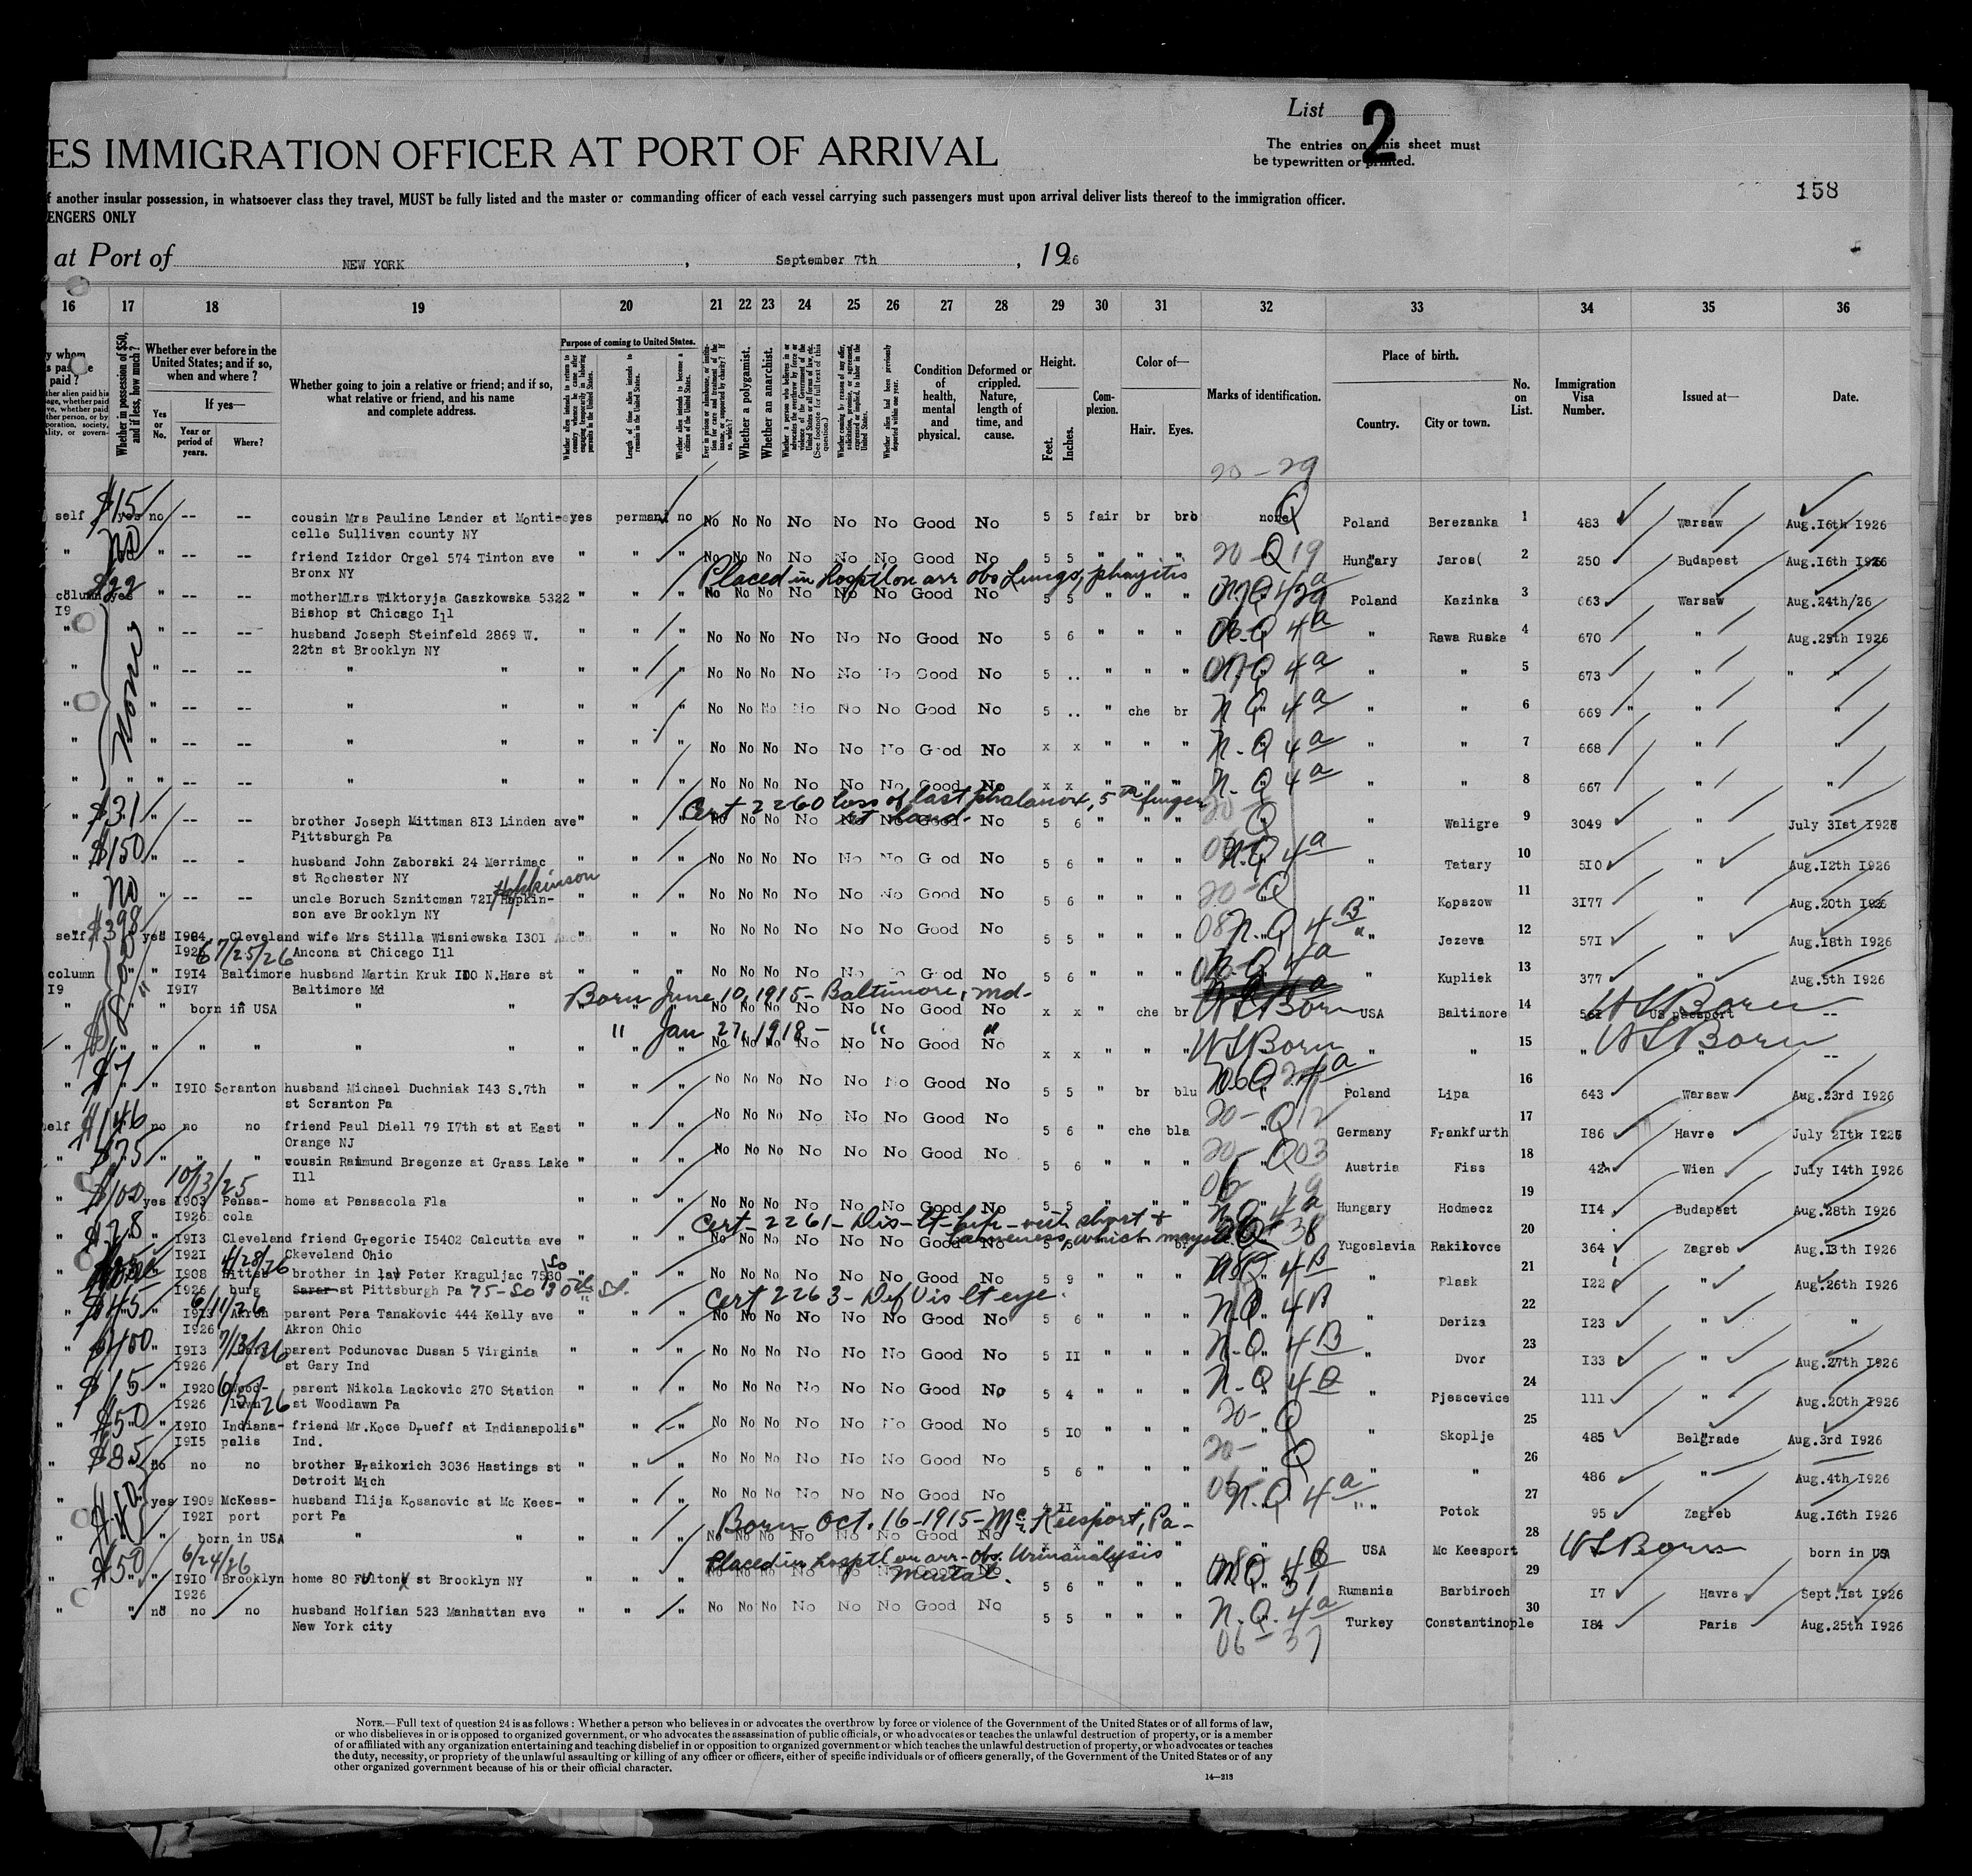 List 2
The entries on this sheet must
be typewritten or printed.
ES IMMIGRATION OFFICER AT PORT OF ARRIVAL
158
f another insular possession, in whatsoever class they travel, MUST be fully listed and the master or commanding officer of each vessel carrying such passengers must upon arrival deliver lists thereof to the immigration officer.
ENGERS ONLY
at Port of NEW YORK , September 7th , 1926
16 17 18 19 20 21 22 23 24 25 26 27 28 29 30 31 32 33 34 35 36
Whether in possession of $50, and if less, how much?
Whether ever before in the United States; and if so, when and where?
Yes or No.
If yes—
Year or period of years.
Where?
Whether going to join a relative or friend; and if so, what relative or friend, and his name and complete address.
Purpose of coming to United States.
Length of time alien intends to remain in the United States.
Whether alien intends to become a citizen of the United States.
Whether a polygamist.
Whether an anarchist.
Condition of health, mental and physical.
Deformed or crippled. Nature, length of time, and cause.
Height.
Feet. Inches.
Complexion.
Color of—
Hair. Eyes.
Marks of identification.
Place of birth.
Country. City or town.
No. on List.
Immigration Visa Number.
Issued at—
Date.
20 - 29
self $15 yes no -- -- cousin Mrs Pauline Lander at Monti- yes permanl no No No No No No No Good No 5 5 fair br bro none Q Poland Berezanka 1 483 Warsaw Aug.16th 1926
celle Sullivan county NY
" no " -- -- friend Izidor Orgel 574 Tinton ave " " " No No No No No No Good No 5 5 " " " 20 - Q 19 Hungary Jaros( 2 250 Budapest Aug.16th 1926
Bronx NY
Placed in hosptl on arr obs Lungs,
column $22 yes " -- -- mother MLrs Wiktoryja Gaszkowska 5322 " " " No No No No No No Good No 5 5 " " " Poland Kazinka 3 663 Warsaw Aug.24th/26
19 Bishop st Chicago Ill
" None " -- -- husband Joseph Steinfeld 2869 W. " " " No No No No No No Good No 5 6 " " " Q 4a " Rawa Ruska 4 670 " Aug.25th 1926
22tn st Brooklyn NY
" " -- -- " " " " " No No No No No No Good No 5 .. " " " Q 4a " " 5 673 " " "
" " -- -- " " " " " No No No No No No Good No 5 .. " che br N Q 4a " " 6 669 " " "
" " -- -- " " " " " No No No No No No Good No x x " " " N. Q 4a " " 7 668 " "
" " " -- -- " " " " " No No No No No No Good No x x " " " N. Q 4a " " 8 667 " "
Cert 2260 loss of last phalanx, 5th finger
" $31 " -- -- brother Joseph Mittman 813 Linden ave " " No No No No No No Good No 5 6 " " " 20 - Q " Waligre 9 3049 " July 31st 1926
Pittsburgh Pa
" $150 " -- - husband John Zaborski 24 Merrimac " " " No No No No No No Good No 5 6 " " " N.Q 4a " Tatary 10 510 " Aug.12th 1926
st Rochester NY
Hopkinson
" no " -- -- uncle Boruch Sznitcman 721 Hopkin- " " " No No No No No No Good No 5 6 " " " 20 - Q " Kopszow 11 3177 " Aug.20th 1926
son ave Brooklyn NY
self $398 yes 1904 Cleveland wife Mrs Stilla Wisniewska 1301 " " " No No No No No No Good No 5 5 " " " 08 N.Q 4B " Jezeva 12 571 " Aug.18th 1926
7/25/26 Ancona st Chicago Ill
column " " 1914 Baltimore husband Martin Kruk 1100 N.Hare st " " " No No No No No No Good No 5 6 " " " N.Q 4a " Kupliek 13 377 " Aug.5th 1926
19 1917 Baltimore Md
Born June 10, 1915 - Baltimore, Md-
" " born in USA " " " " " No No No No No No Good No x x " che br US Born USA Baltimore 14 561 US Born US passport --
" Jan 27, 1918 - " "
" " " " " " " " " No No No No No No Good No x x " " " US Born " " 15 " US Born " --
" $7 " 1910 Scranton husband Michael Duchniak 143 S.7th " " " No No No No No No Good No 5 5 " br blu Poland Lipa 16 643 Warsaw Aug.23rd 1926
st Scranton Pa
self $146 no no no friend Paul Diell 79 17th st at East " " " No No No No No No Good No 5 6 " che bla 20 - Q 12 Germany Frankfurth 17 186 Havre July 21th 1926
Orange NJ
" $75 " " " cousin Raimund Bregenze at Grass Lake " " No No No No No No Good No 5 6 " " " 20 - Q 03 Austria Fiss 18 42 Wien July 14th 1926
Ill
10/13/25
" $100 yes 1903 Pensa- home at Pensacola Fla " " " No No No No No No Good No 5 5 " " " Hungary Hodmecz 19 114 Budapest Aug.28th 1926
1926 cola
Cert - 2261 - Dis - lt - hip - with short +
lameness, which may
" $28 " 1913 Cleveland friend Gregoric 15402 Calcutta ave " " " No No No No No No Good No 5 " " " Yugoslavia Rakikovce 20 364 Zagreb Aug.13th 1926
1921 Ckeveland Ohio
4/28/26
" " 1908 Pittsb brother in law Peter Kraguljac 7530 " " " No No No No No No Good No 5 9 " " " Q 4B " Plask 21 122 " Aug.26th 1926
1926 burg Sarar st Pittsburgh Pa 75 - So 20th St.
Cert 2263 - Def Vis lt eye.
" $45 " 1913 Akron parent Pera Tanakovic 444 Kelly ave " " " No No No No No No Good No 5 6 " " " N.Q 4B " Deriza 22 123 " "
6/11/26
1926 Akron Ohio
" $400 " 1913 Gary parent Podunovac Dusan 5 Virginia " " " No No No No No No Good No 5 11 " " " N.Q. 4B " Dvor 23 133 " Aug.27th 1926
1926 7/13/26 st Gary Ind
" $15 " 1920 Wood- parent Nikola Lackovic 270 Station " " " No No No No No No Good No 5 4 " " " N.Q. " Pjescevice 24 111 " Aug.20th 1926
1926 lawn 6/5/26 st Woodlawn Pa
" $50 " 1910 Indiana- friend Mr.Koce Drueff at Indianapolis " " " No No No No No No Good No 5 10 " " " 20 - Q " Skoplje 25 485 Belgrade Aug.3rd 1926
1915 polis Ind.
" $85 no no no brother Braikoxich 3036 Hastings st " " No No No No No No Good No 5 6 " " " 20 - Q " " 26 486 " Aug.4th 1926
Detroit Mich
" yes 1909 McKess- husband Ilija Kosanovic at Mc Kees- " " " No No No No No No Good No 4 11 " " " N.Q 4a " Potok 27 95 Zagreb Aug.16th 1926
1921 port port Pa
Born Oct. 16 - 1915 - McKeesport, Pa -
" " born in USA " " " " " No No No No No No Good No x x " " " " USA Mc Keesport 28 US Born born in US
Placed in hosptl on arr - Obs. Urinanalysis
Mental.
6/24/26
" $50 " " 1910 Brooklyn home 80 Fulton st Brooklyn NY " " " 5 6 " " " Rumania Barbiroch 29 17 Havre Sept.1st 1926
1926
" " no no no husband Holfian 523 Manhattan ave " " " No No No No No No Good No 5 5 " " " N.Q. 4a Turkey Constantinople 30 184 Paris Aug.25th 1926
New York city
06 - 37
NOTE.—Full text of question 24 is as follows: Whether a person who believes in or advocates the overthrow by force or violence of the Government of the United States or of all forms of law,
or who disbelieves in or is opposed to organized government, or who advocates the assassination of public officials, or who advocates or teaches the unlawful destruction of property, or is a member
of or affiliated with any organization entertaining and teaching disbelief in or opposition to organized government or which teaches the unlawful destruction of property, or who advocates or teaches
the duty, necessity, or propriety of the unlawful assaulting or killing of any officer or officers, either of specific individuals or of officers generally, of the Government of the United States or of any
other organized government because of his or their official character.
14—213